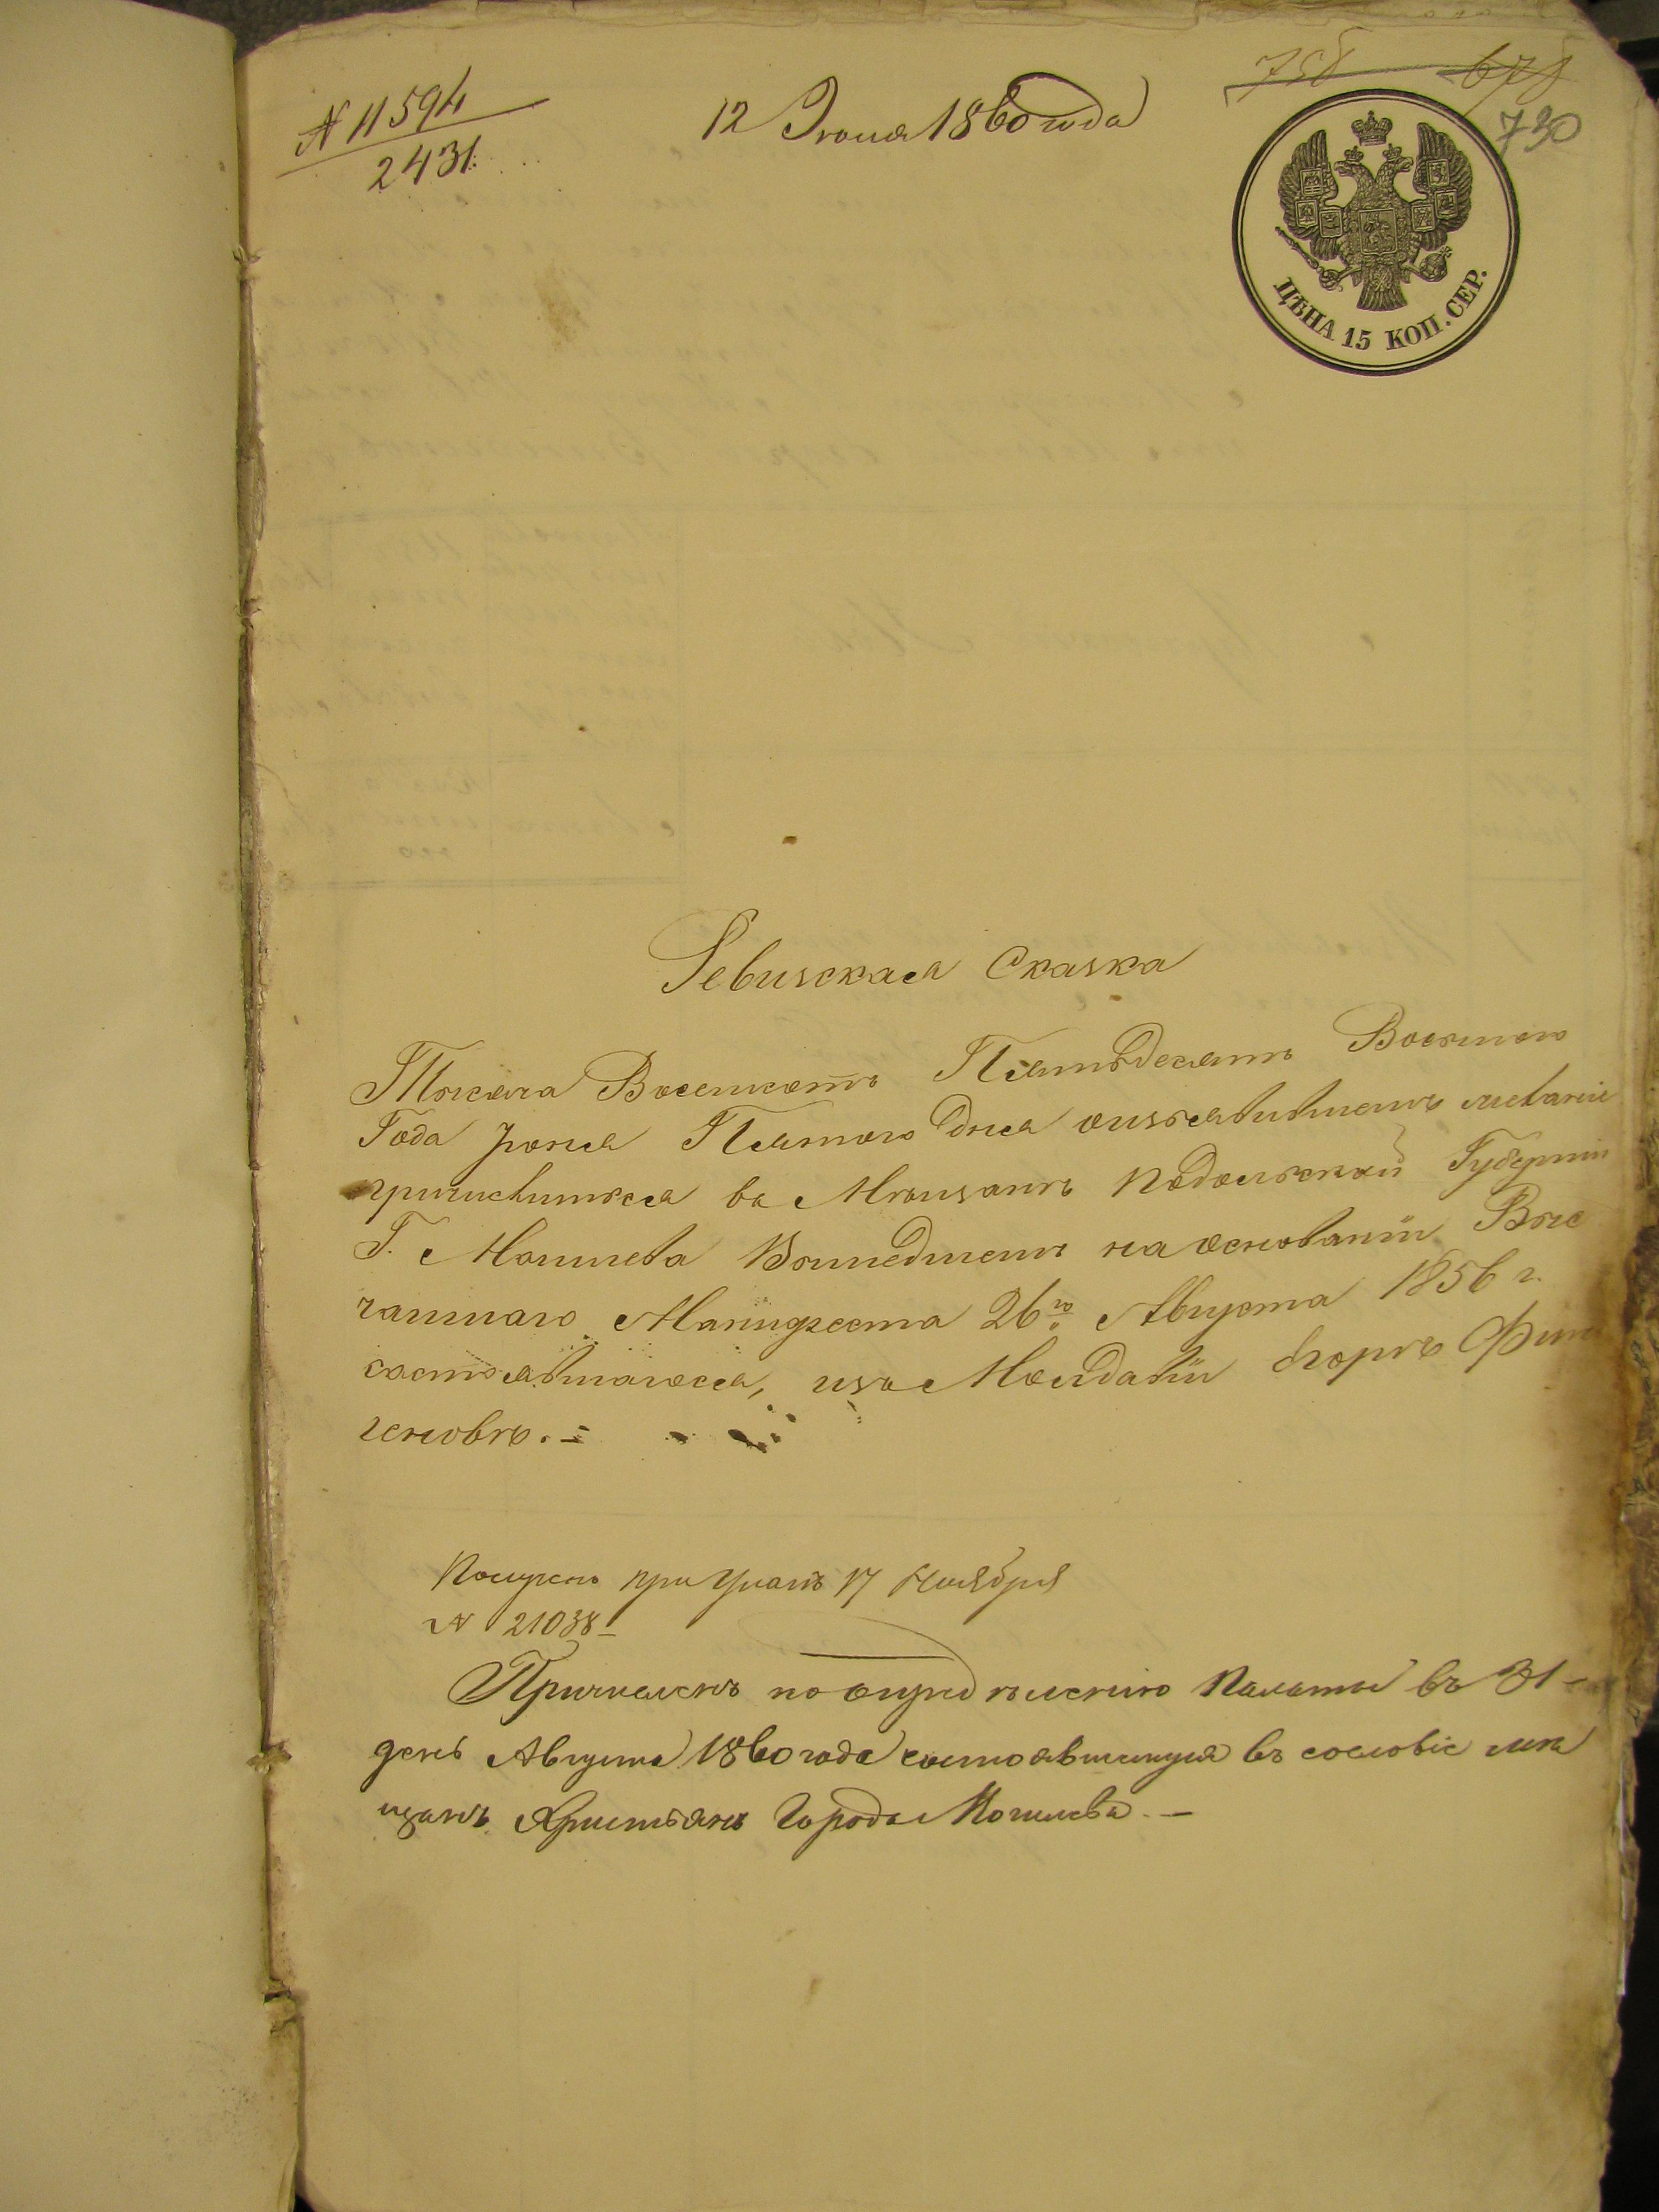 № 11594
2431.
12 Іюня 1860 года
758 678
730
ЦѢНА 15 КОП. СЕР.
Ревизская Сказка
Тысяча Восемсотъ Пятьдесятъ Восьмого
Года Іюня Пятого дня
въ Мѣщане Подольской Губерніи
Г. Могилева Вышедшемъ на основаніи Выс
чайшаго Манифеста 26го Августа 1856 г.
состоявшагося, изъ Молдавіи
геновъ.
Получен при Указѣ 17 Ноября
№ 21038
Причисленъ по опредѣленію Палаты въ 31
день Августа 1860 года состоявшемуся въ сословіе мѣ
щанъ Христьянъ Города Могилева